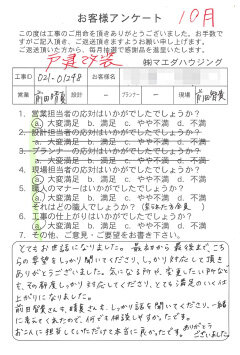 お客様アンケート 10月
この度は工事のご用命を頂きありがとうございます。お手数で
すがご記入頂き、ご返送頂きますようお願い申し上げます。
ご返送頂いた方から、毎月抽選で感謝品を進呈いたします。
戸建改装 ㈱マエダハウジング
工事ID 021-01298 お客様名
営業 設計 － プランナー － 現場
1. 営業担当者の応対はいかがでしたでしょうか?
ⓐ 大変満足 b. 満足 c. やや不満 d. 不満
2. 設計担当者の応対はいかがでしたでしょうか?
a. 大変満足 b. 満足 c. やや不満 d. 不満
3. プランナーの応対はいかがでしたでしょうか?
a. 大変満足 b. 満足 c. やや不満 d. 不満
4. 現場担当者の応対はいかがでしたでしょうか?
ⓐ 大変満足 b. 満足 c. やや不満 d. 不満
5. 職人のマナーはいかがでしたでしょうか?
ⓐ 大変満足 b. 満足 c. やや不満 d. 不満
それはどの職人でしょうか?
6. 工事の仕上がりはいかがでしたでしょうか?
ⓐ 大変満足 b. 満足 c. やや不満 d. 不満
7. その他、ご意見・ご要望をお書き下さい。
とてもお世話になりました。最初から最後まで、こち
らの希望をしっかり聞いてくださり、しっかり対応して頂き
ありがとうございました。気になる所が、変更したい所なども
その都度しっかり対応してくださり、とても満足のいく仕
上がりになりました。
前田智長さん、 さん、しっかり話を聞いてくださり、一緒
に考えてくれたので、何でも相談しやすかったです。
お二人に担当していただけて本当に良かったです。ありがとう
ございました。